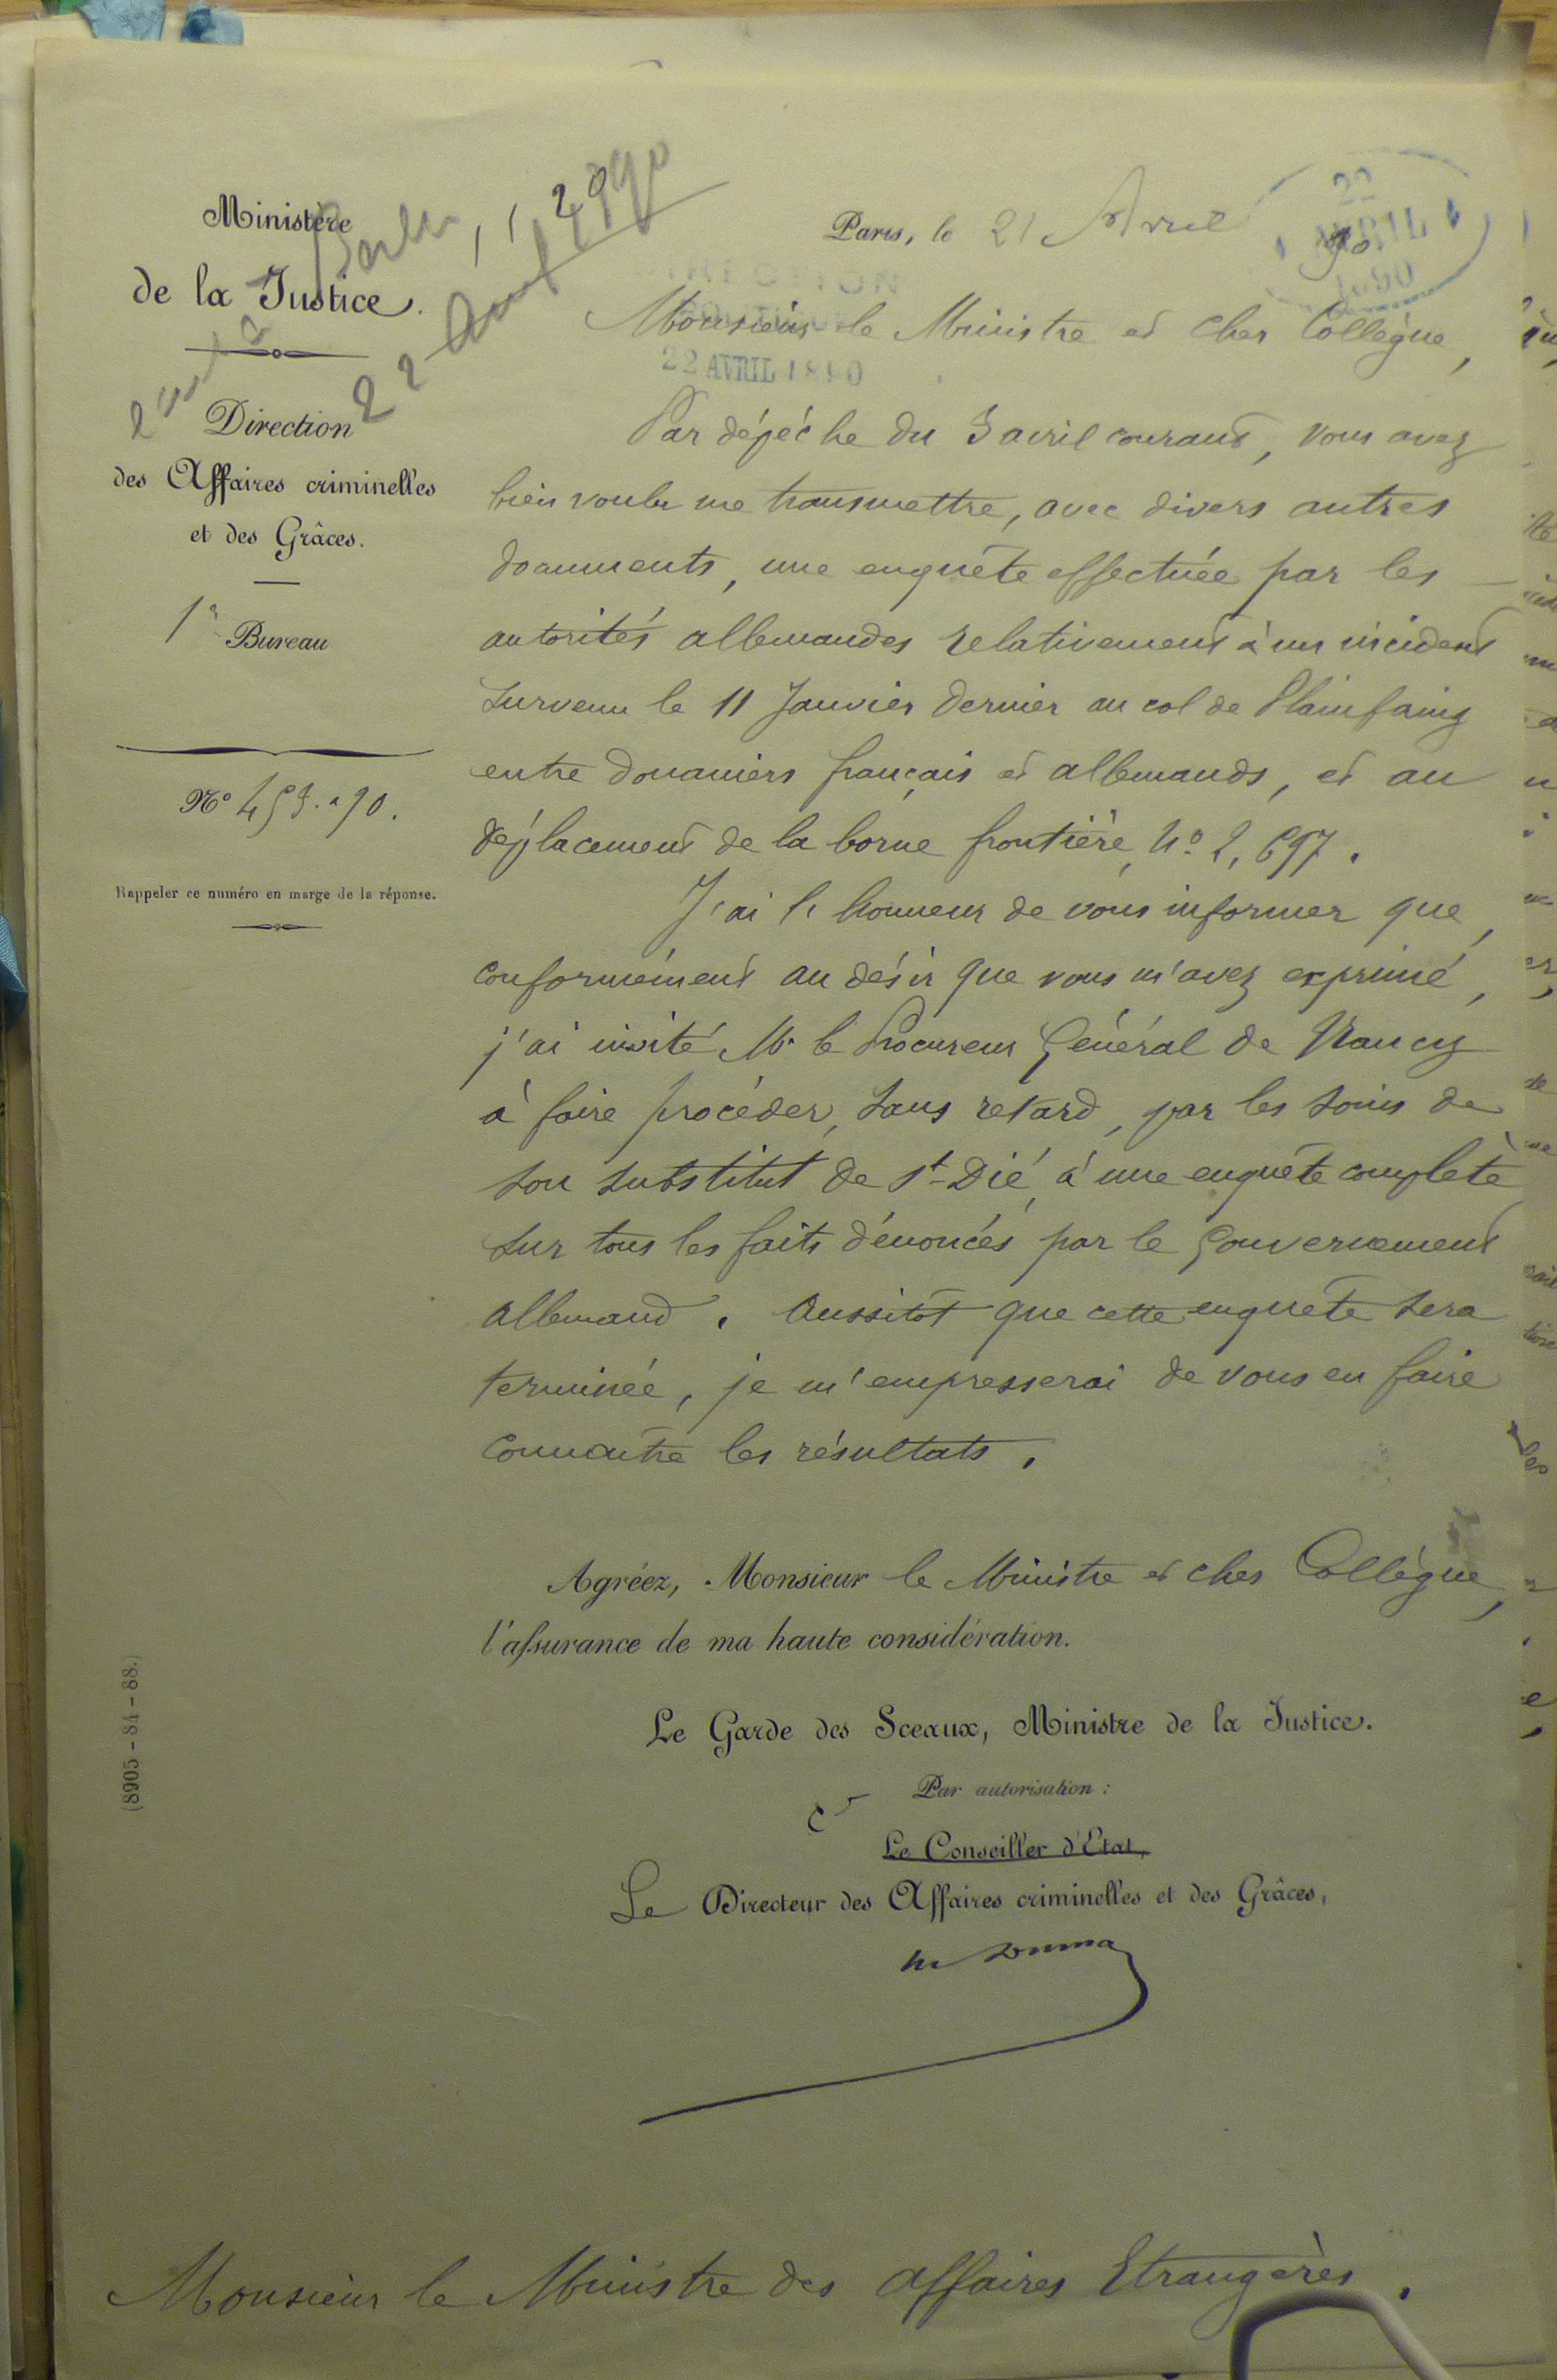 Ministère
de la Justice.
Direction
des Affaires criminelles
et des Grâces.
1er Bureau
Rappeler ce numéro en marge de la réponse.
(8905-84-88.)
22 Avril 1890
Paris, le 21 Avril 90
22
AVRIL
1890
DIRECTION
22 AVRIL 1890
Monsieur le Ministre et cher Collègue,
Par dépêche du 3 avril courant, vous avez
bien voulu me transmettre, avec divers autres
documents, une enquête effectuée par les
autorités allemandes relativement à un incident
survenu le 11 Janvier dernier au col de Plainfaing
entre douaniers français et allemands, et au
déplacement de la borne frontière, No 2,697.
J'ai l'honneur de vous informer que,
conformément au désir que vous m'avez exprimé,
j'ai invité M. le Procureur Général de Nancy
à faire procéder, sans retard, par les soins de
son substitut de St-Dié, à une enquête complète
sur tous les faits dénoncés par le Gouvernement
allemand. Aussitôt que cette enquête sera
terminée, je m'empresserai de vous en faire
connaître les résultats.
Agréez, Monsieur le Ministre et cher Collègue,
l'assurance de ma haute considération.
Le Garde des Sceaux, Ministre de la Justice.
Par autorisation :
Le Conseiller d'Etat,
Le Directeur des Affaires criminelles et des Grâces,
Monsieur le Ministre des affaires Etrangères.